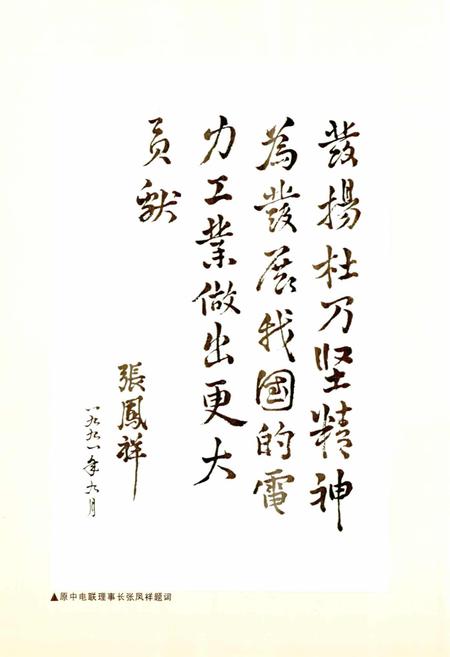 发揚杜乃坚精神
為發展我國的電
力工業做出更大
贡献
張鳳祥
一九九一年九月
▲原中电联理事长张凤祥题词